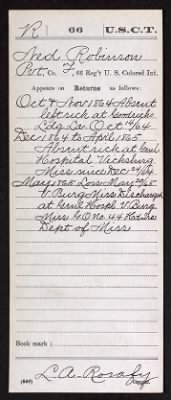 R 66 U.S.C.T.
Ned Robinson
Pvt, Co. F, 66 Reg't U. S. Colored Inf.
Appears on Returns as follows:
Oct & Nov 1864 Absent
left sick at Goodrichs
Ldg La Oct /64
Dec 1864 to April 1865
Absent sick at Genl
Hospital Vicksburg
Miss since Dec 24/64
May 1865 Loss May 20/65
V. Burg Miss Discharged
at Genl Hospl V. Burg
Miss G.O. No. 44
Dept of Miss
Book mark:
L. A.
(669) Copyist.